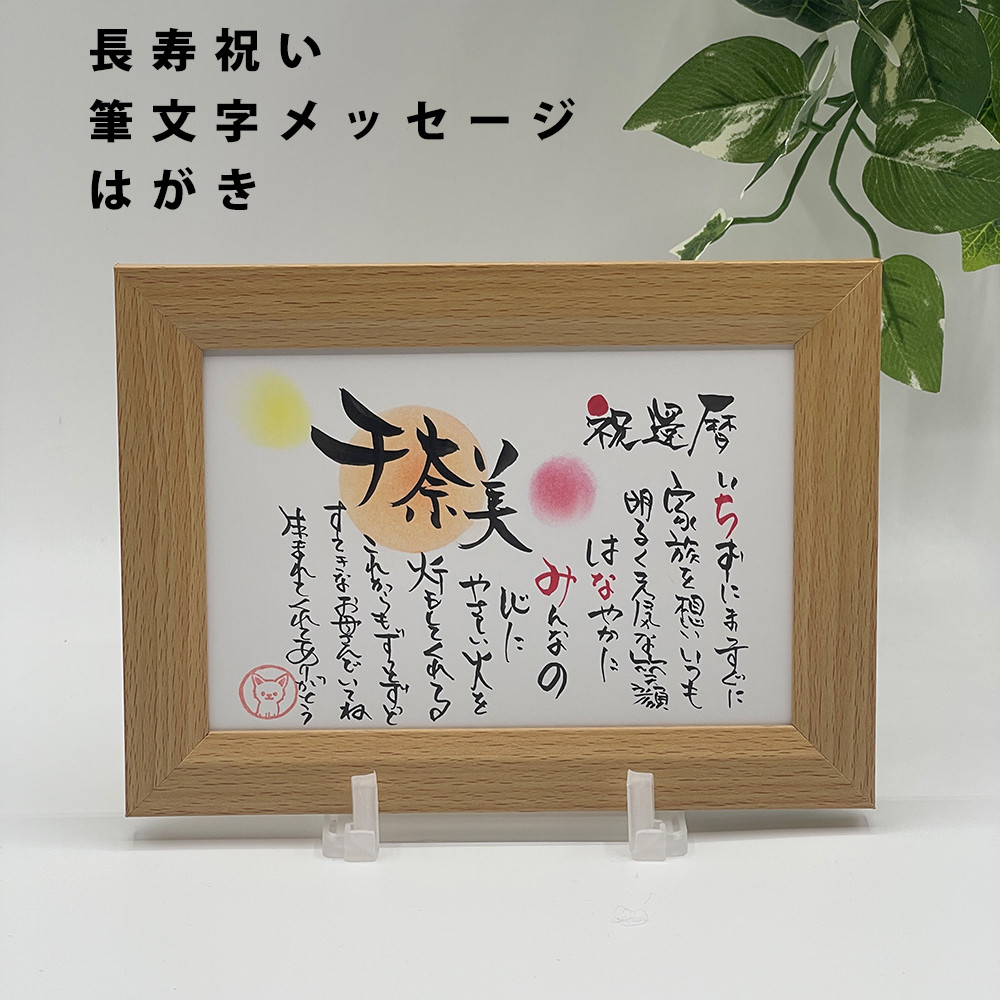 長寿祝い
筆文字メッセージ
はがき
祝還暦
千奈美
いちずにまっすぐに
家族を想いいつも
明るく元気な笑顔
はなやかに
みんなの
心に
やさしい火を
灯もしてくれる
これからもずっとずっと
すてきなお母さんでいてね
生まれてくれてありがとう